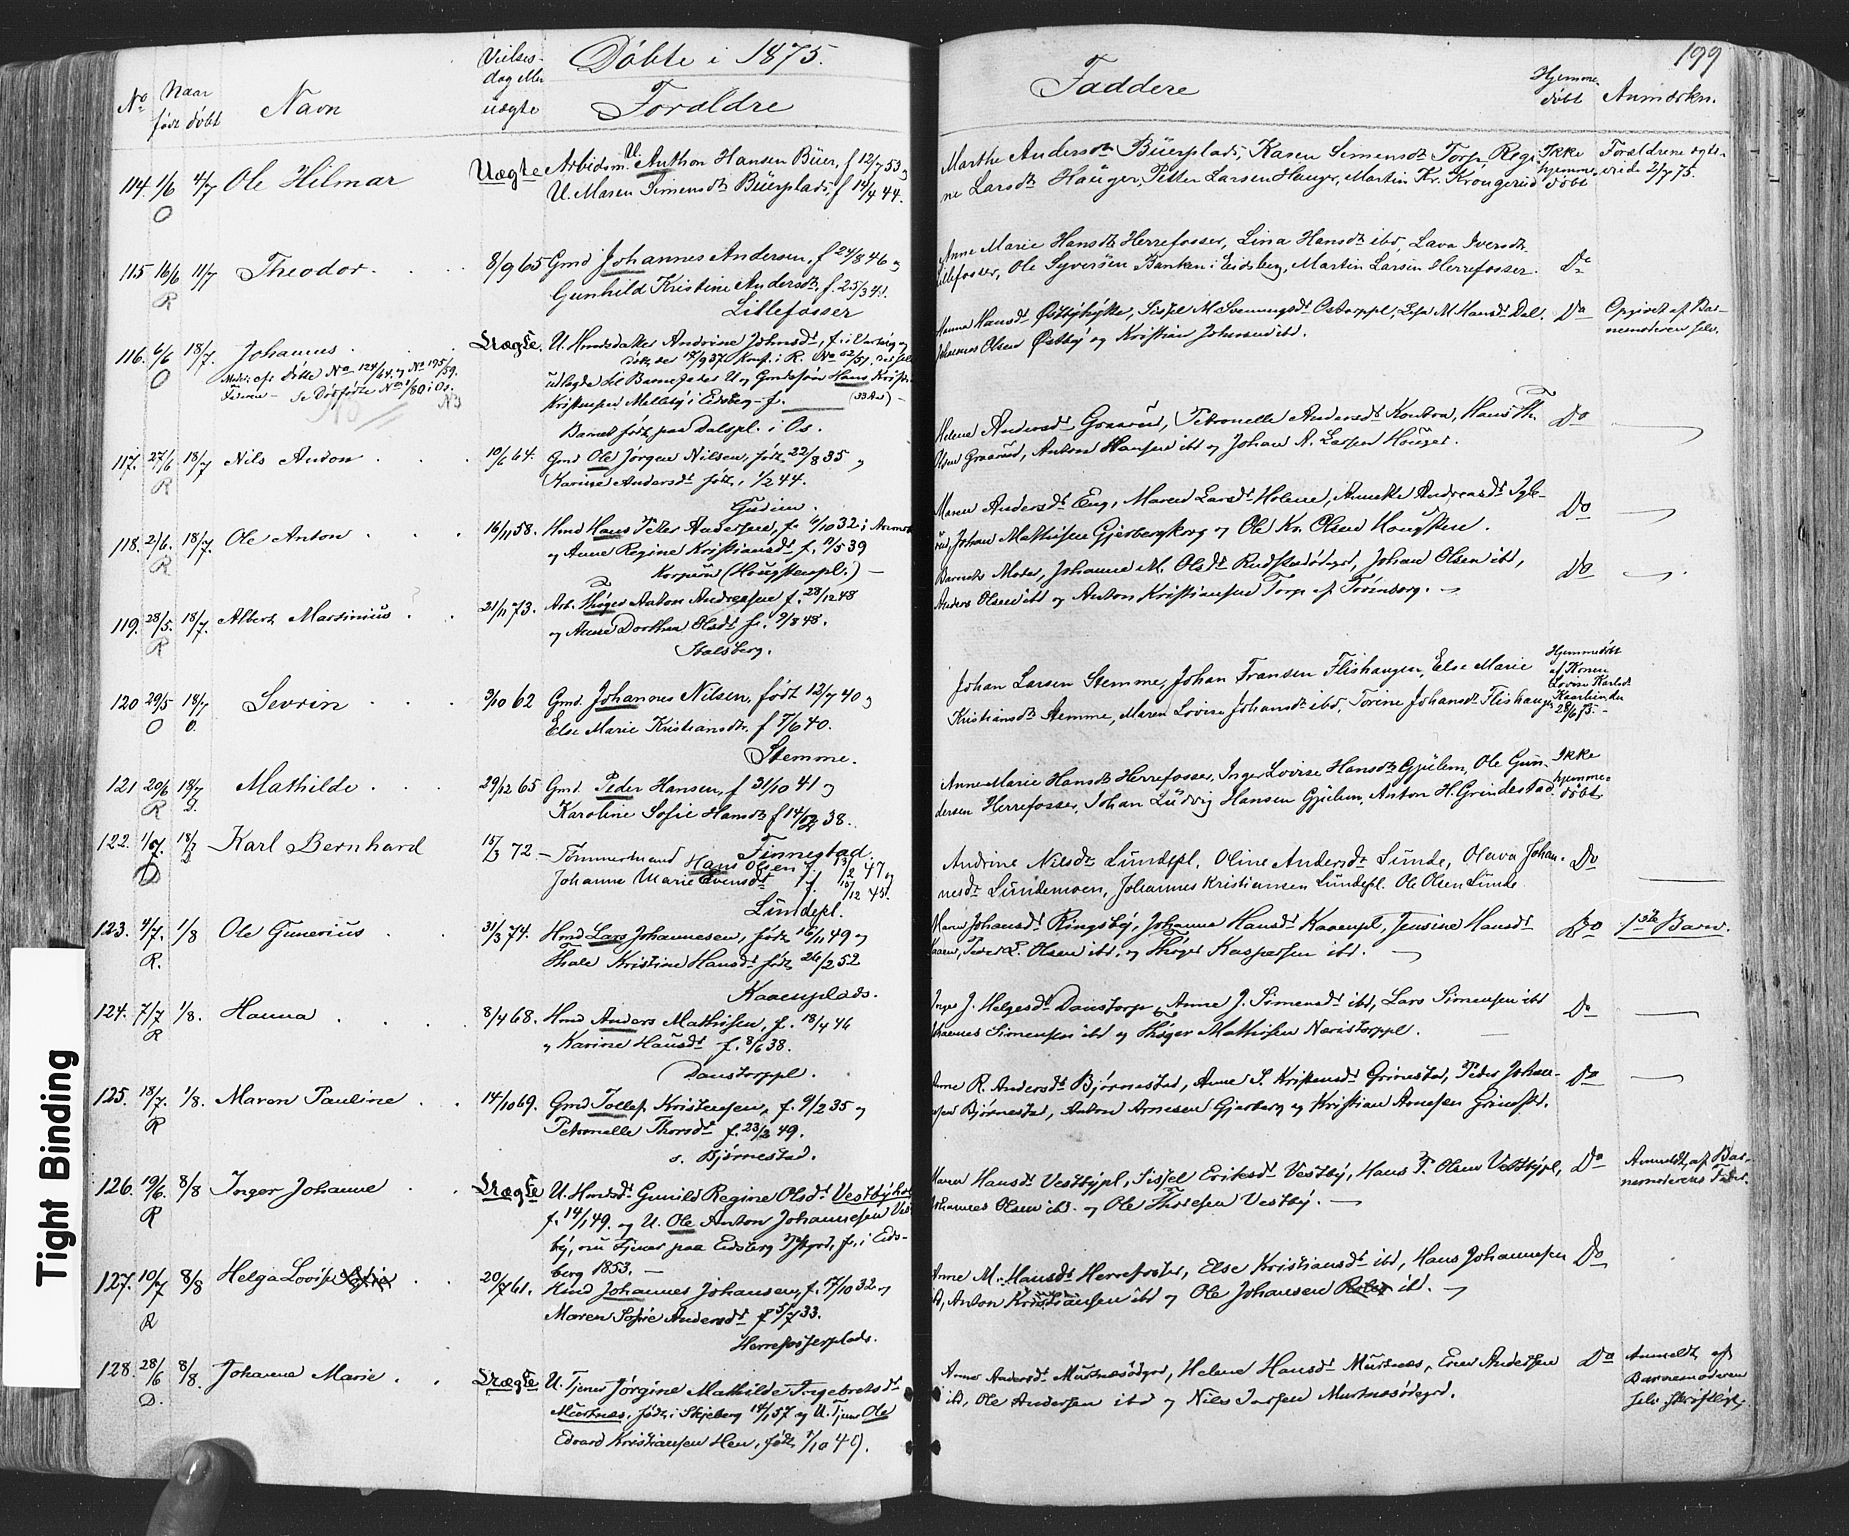 Døbte i 1875.
199
No
Naar
født døbt
Navn
Vielses-
dag eller
uægte
Forældre
Faddere
Hjemme
døbt
Anmærkn.
114. 1/6 4/7 Ole Hilmar
O
Uægte Arbeidsm. U. Anthon Hansen Büer, f 12/7 53 og
U. Maren Simensdt Büerplads, f 14/4 44.
Marthe Andersdt Büerplads, Karen Simensdt Torp, Regi-
ne Larsdt Hauger, Petter Larsen Hauger, Martin Kr. Krougerud
Ikke
hjemme-
døbt
Forældrene egte-
viede 2/7 75.
115 16/6 11/7 Theodor.
R
8/9 65 Gmd Johannes Andersen, f 24/8 46 og
Gunhild Kristine Andersdt. f. 25/3 41.
Lillefosser
Anne Marie Hansdt Herrefosser, Lina Hansdt ibd, Lava Iversdt
Lillefosser, Ole Syversen Banken i Eidsberg, Martin Larsen Herrefosser.
Do
116. 6/6 18/7 Johannes.
O
Moder: afs døbte No 124/64. og No 195/59.
Faderen - se Dødfødte No 1/80 i Os.
Uægte. U. Huusdatter Andrine Johnsdt, f. i Varteig og
døbt der 17/9 37. Konf. i R. No 62/51,
udlagte til Barnefader U og Gmdssøn Hans Krist.
Kristensen Melleby i Eidsberg - f. (33 Aar) -
Barnet født paa Dalspl. i Os.
Hanna Hansdt Østbyhytte, Sissel M Svenningsdt Ostorppl, Lisa M. Hansdt Dal.
Johannes Olsen Østby og Kristian Johansen ibd.
Do
Opgivet af Bar-
nemoderen selv.
117. 27/6 18/7 Nils Anton
R
10/6 64. Gmd Ole Jørgen Nilsen, født 22/8 35 og
Karine Andersdt født, 1/2 44.
Gudim.
Helene Andersdt Graarud, Petronelle Andersdt Kontra, Hans Th.
Olsen Graarud, Anton Hansen ibd og Johan A. Larsen Houger.
Do
118. 2/6. 18/7. Ole Anton
R
16/11 58. Hmd Hans Peter Andersen, f. 6/10 32 i
og Anne Regine Kristiansdt f. 11/5 39
Korperud (Hougstenpl.) -
Maren Andersdt Eng, Maren Larsdt Holene, Annette Andreasdt Igle-
rud, Johan Mathisen Gjerbergkorg og Ole Kr. Olsen Hougsten.
Do
119. 28/5. 18/7. Albert Martinius
R
21/11 73. Arb. Thøger Anton Andreasen f. 28/12 48
og Anne Dorthea Olsdt f. 9/8 48.
Stalsberg.
Barnets Moder, Johanne M. Olsdt Rudskødegd, Johan Olsen ibd,
Anders Olsen ibd og Anton Kristiansen Torp af Torsnborg. -
Do
120 29/5 18/7 Sevrin
O O.
9/10 62 Gmd. Johannes Nilsen, født 12/7 40 og
Else Marie Kristiansdt. f 7/6 40.
Stemme.
Johan Larsen Stemme, Johan Fransen Flishaugen, Else Marie
Kristiansdt Stemme, Maren Lovise Johansdt ibd, Torine Johansdt Flishaugen
Hjemmedøbt
af Konen
Lovise Karlsdt
28/6 75.
121 20/6 18/7 Mathilde
R
29/12 65 Gmd. Peder Hansen, f 31/10 41 og
Karoline Sofie Hansdt f 14/12 38.
Finnestad
Anne Marie Hansdt Herrefosser, Inger Lovise Hansdt Gjülem, Ole Gun-
dersen Herrefosser, Johan Lüdvig Hansen Gjülem, Anton H. Grindestad.
Ikke
hjemme-
døbt
122. 1/7. 18/7 Karl Bernhard
D
15/3 72 - Tømmermand Hans Olsen f 13/2 47 og
Johanne Marie Evensdt f 15/12 45.
Lündepl.
Andrine Nilsdt Lündepl. Oline Andersdt Sünde, Olava Johan-
nesdt Lündemoen, Johannes Kristiansen Lündepl. Ole Olsen Lünde
Do
123. 4/7. 1/8 Ole Gunerius
R.
31/3 74. Hmd Lars Johannesen, født 16/11 49 og
Thale Kristine Hansdt født 26/2 52
Kaaenplads.
Maren Johansdt Ringsby, Johanne Hansdt Kaaenpl, Jensine Hansdt
Kaaen, Peder L. Olsen ibd. og Thøger Kaspersen ibd.
Do
1ste Barn.
124. 7/7 1/8. Hanna
R
8/4 68. Hmd Anders Mathisen, f. 18/4 46
og Karine Hansdt f. 8/6 38.
Danstorppl.
Inger J. Helgesdt Danstorp, Anne J. Simensdt ibd, Lars Simensen ibd
Johannes Simensen ibd og Thøger Mathisen Næristorppl.
Do
125. 18/7. 1/8. Maren Pauline
R
14/10 69. Gmd Tollef Kristensen, f. 9/2 35 og
Petronelle Thorsdt f. 23/3 49.
s. Bjørnestad.
Anne R. Andersdt Bjørnestad, Anne S. Kristensdt Grinestad, Peder Johan-
nesen Bjørnestad, Anton Arnesen Gjerberg og Kristian Arnesen Grinestad.
Do
126. 19/6. 8/8 Inger Johanne
R
Uægte U. Hmdsdt. Gunild Regine Olsdt Vestbyhol
f. 14/1 49. og U. Ole Anton Johannesen Vest-
by, nu Tjener paa Eidsberg Pstgrd, f. i Eids-
berg 1853. -
Maren Hansdt Vestbypl, Sissel Eriksdt Vestby, Hans T. Olsen Vestbypl,
Johannes Olsen ibd. og Ole Thoresen Vestby. -
Do
Anmeldt af Bar-
nemoderens Fader.
127. 10/7 8/8 Helga Lovise
R
20/7 61. Hmd Johannes Johansen, f. 17/10 32 og
Maren Sofie Andersdt f 5/7 33.
Herrefosserplads.
Anne M. Hansdt Herrefosser, Else Kristiansdt ibd, Hans Johannesen
ibd, Anton Kristiansen ibd og Ole Johansen ibd. -
Do
128. 28/6 8/8. Johanne Marie
D.
Uægte U. Tjener Jørgine Mathilde Ingebretsdt
Murtnæs, født i Skjeberg 14/1 57 og U. Tjener Ole
Edvard Kristiansen Hen, født 1/10 49.
Anne Andersdt Murtnæsødegrd, Helene Hansdt Murtnæs, Even Andersen
ibd, Ole Andersen ibd og Nils Larsen Murtnæsødegrd.
Do
Anmeldt af
Barnemoderen
selv skriftligt.
Tight Binding